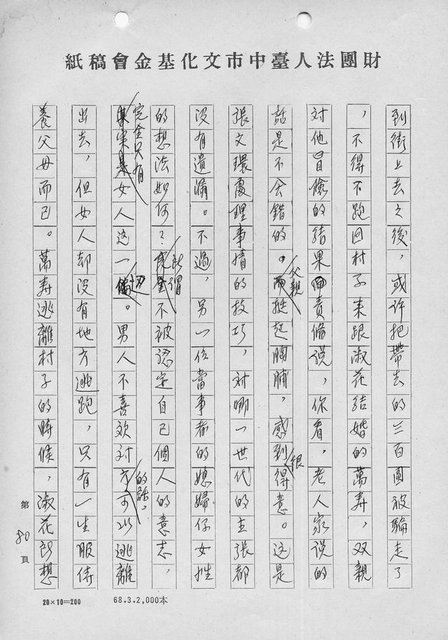 財團法人臺中市文化基金會稿紙
到街上去之後，或許把帶去的三百圓被騙走了
，不得不跑回村子来跟淑花結婚的萬壽，双親
对他冒險的結果責備説，你看，老人家説的
話是不会錯的。父親挺起胸脯，感到很得意。这是
張文環處理事情的技巧，对哪一世代的主張都
没有遺漏。不過，另一位當事者的媳婦仔女性
的想法如何？所謂不被認定自己個人的意志，
完全只有女人这一切。男人不喜欢对方的話，可以逃離
出去，但女人却没有地方逃跑，只有一生服侍
養父母而已。萬壽逃離村子的時候，淑花即想
第80頁
20×10=200
68.3.2,000本